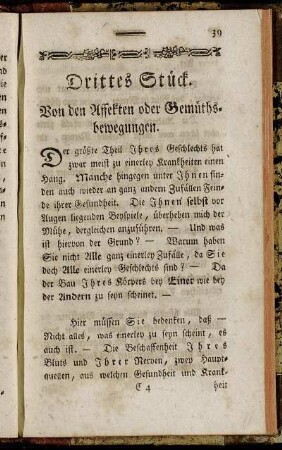 39
Drittes Stück.
Von den Affekten oder Gemüths-
bewegungen.
Der größte Theil Ihres Geschlechts hat
zwar meist zu einerley Krankheiten einen
Hang. Manche hingegen unter Ihnen fin-
den auch wieder an ganz andern Zufällen Fein-
de ihrer Gesundheit. Die Ihnen selbst vor
Augen liegenden Beyspiele, überheben mich der
Mühe, dergleichen anzuführen. — Und was
ist hiervon der Grund? — Warum haben
Sie nicht Alle ganz einerley Zufälle, da Sie
doch Alle einerley Geschlechts sind? — Da
der Bau Ihres Körpers bey Einer wie bey
der Andern zu seyn scheinet. —
Hier müssen Sie bedenken, daß —
Nicht alles, was einerley zu seyn scheint, es
auch ist. — Die Beschaffenheit Ihres
Bluts und Ihrer Nerven, zwey Haupt-
quellen, aus welchen Gesundheit und Krank-
C 4 heit